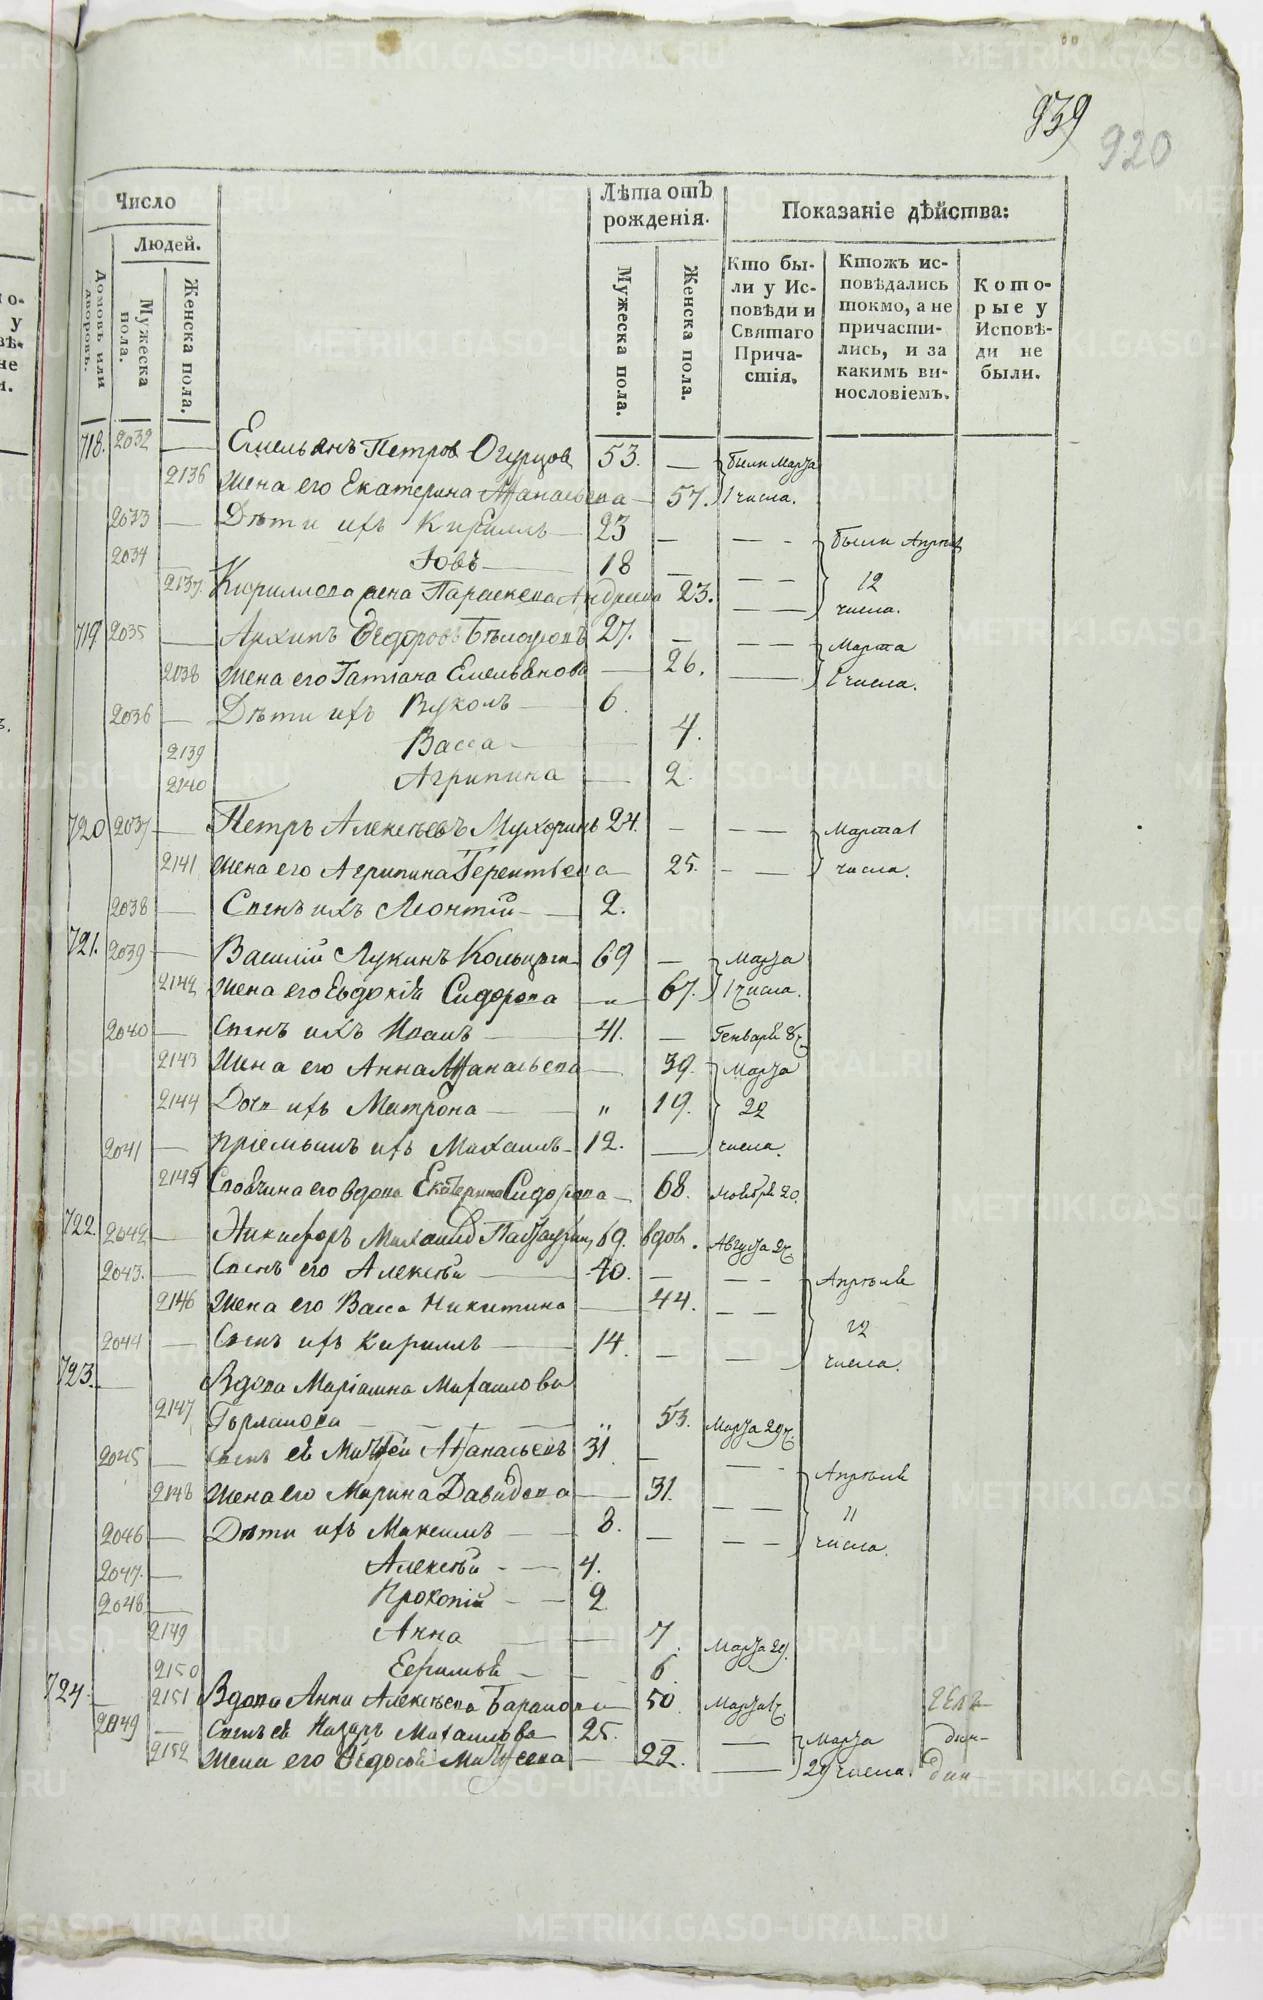 939
920
Число
Людей.
Домовъ или дворовъ.
Мужеска пола.
Женска пола.
Лѣта отъ рожденія.
Мужеска пола.
Женска пола.
Показаніе дѣйства:
Кто были у Исповѣди и Святаго Причастія.
Ктожъ исповѣдались токмо, а не причастились, и за какимъ винословіемъ.
Которые у Исповѣди не были.
718. 2032 — Емельянъ Петров Огурцов 53. — были Марта
2136 Жена его Екатерина Афанасьева — 57. 1 числа.
2033 — Дѣти ихъ Кириллъ — 23 — — - были Апрѣля
2034 Іовъ — 18 — — — 12
2137. Кириллова жена Параскева Андреева 23. — — числа.
719 2035 — Архипъ Ѳедоровъ 27. — — — Марта
2038 Жена его Татіана Емельянова — 26. — 1 числа.
2036 — Дѣти ихъ Вуколъ — 6.
2139 Васса — 4.
2140 Агрипина — 2.
720 2037 — Петръ Алексѣевъ Мухоринъ 24. — — — Марта 1
2141 Жена его Агрипина Терентьева — 25. - — числа.
2038 — Сынъ ихъ Леонтій — 2.
721. 2039 — Василій Лукинъ 69 — Марта
2142 Жена его Евдокія Сидорова — „ — 67. 1 числа.
2040 — Сынъ ихъ Иванъ — 41. — Генваря 8 ч.
2143 Жена его Анна Афанасьева — 39. Марта
2144 Дочь ихъ Матрона — „ 19. 22
2041 — пріемышъ ихъ Михаилъ — 12. — числа.
2145 его вдова Екатерина Сидорова — 68. Ноября 20.
722. 2042 — Никифоръ Михаилов 69. вдов. Августа
2043. — Сынъ его Алексѣй — 40. — — — Апрѣля
2146 Жена его Васса Никитина — 44. — — 12
2044 — Сынъ ихъ Кириллъ — 14. — — числа.
723. — Вдова Маріамна Михаилова
2147 — „ 53. Марта 29 ч.
2045 — Сынъ её Матѳей Афанасьевъ 31 — — — Апрѣля
2148 Жена его Марина Давидова — 31. — — 11
2046 — Дѣти ихъ Максимъ — 8. — — — числа.
2047. — Алексѣй — 4.
2048 — Прокопій — 2
2149 Анна — 7. Марта 29.
2150 — 6.
724. — 2151 Вдова Анна Алексѣева Баранова — 50. Марта
2049 — Сынъ её Назаръ Михаилова — 25. — — Марта
2152 Жена его Ѳедосья Матѳеева — 22. — 29 числа.
METRIKI.GASO-URAL.RU